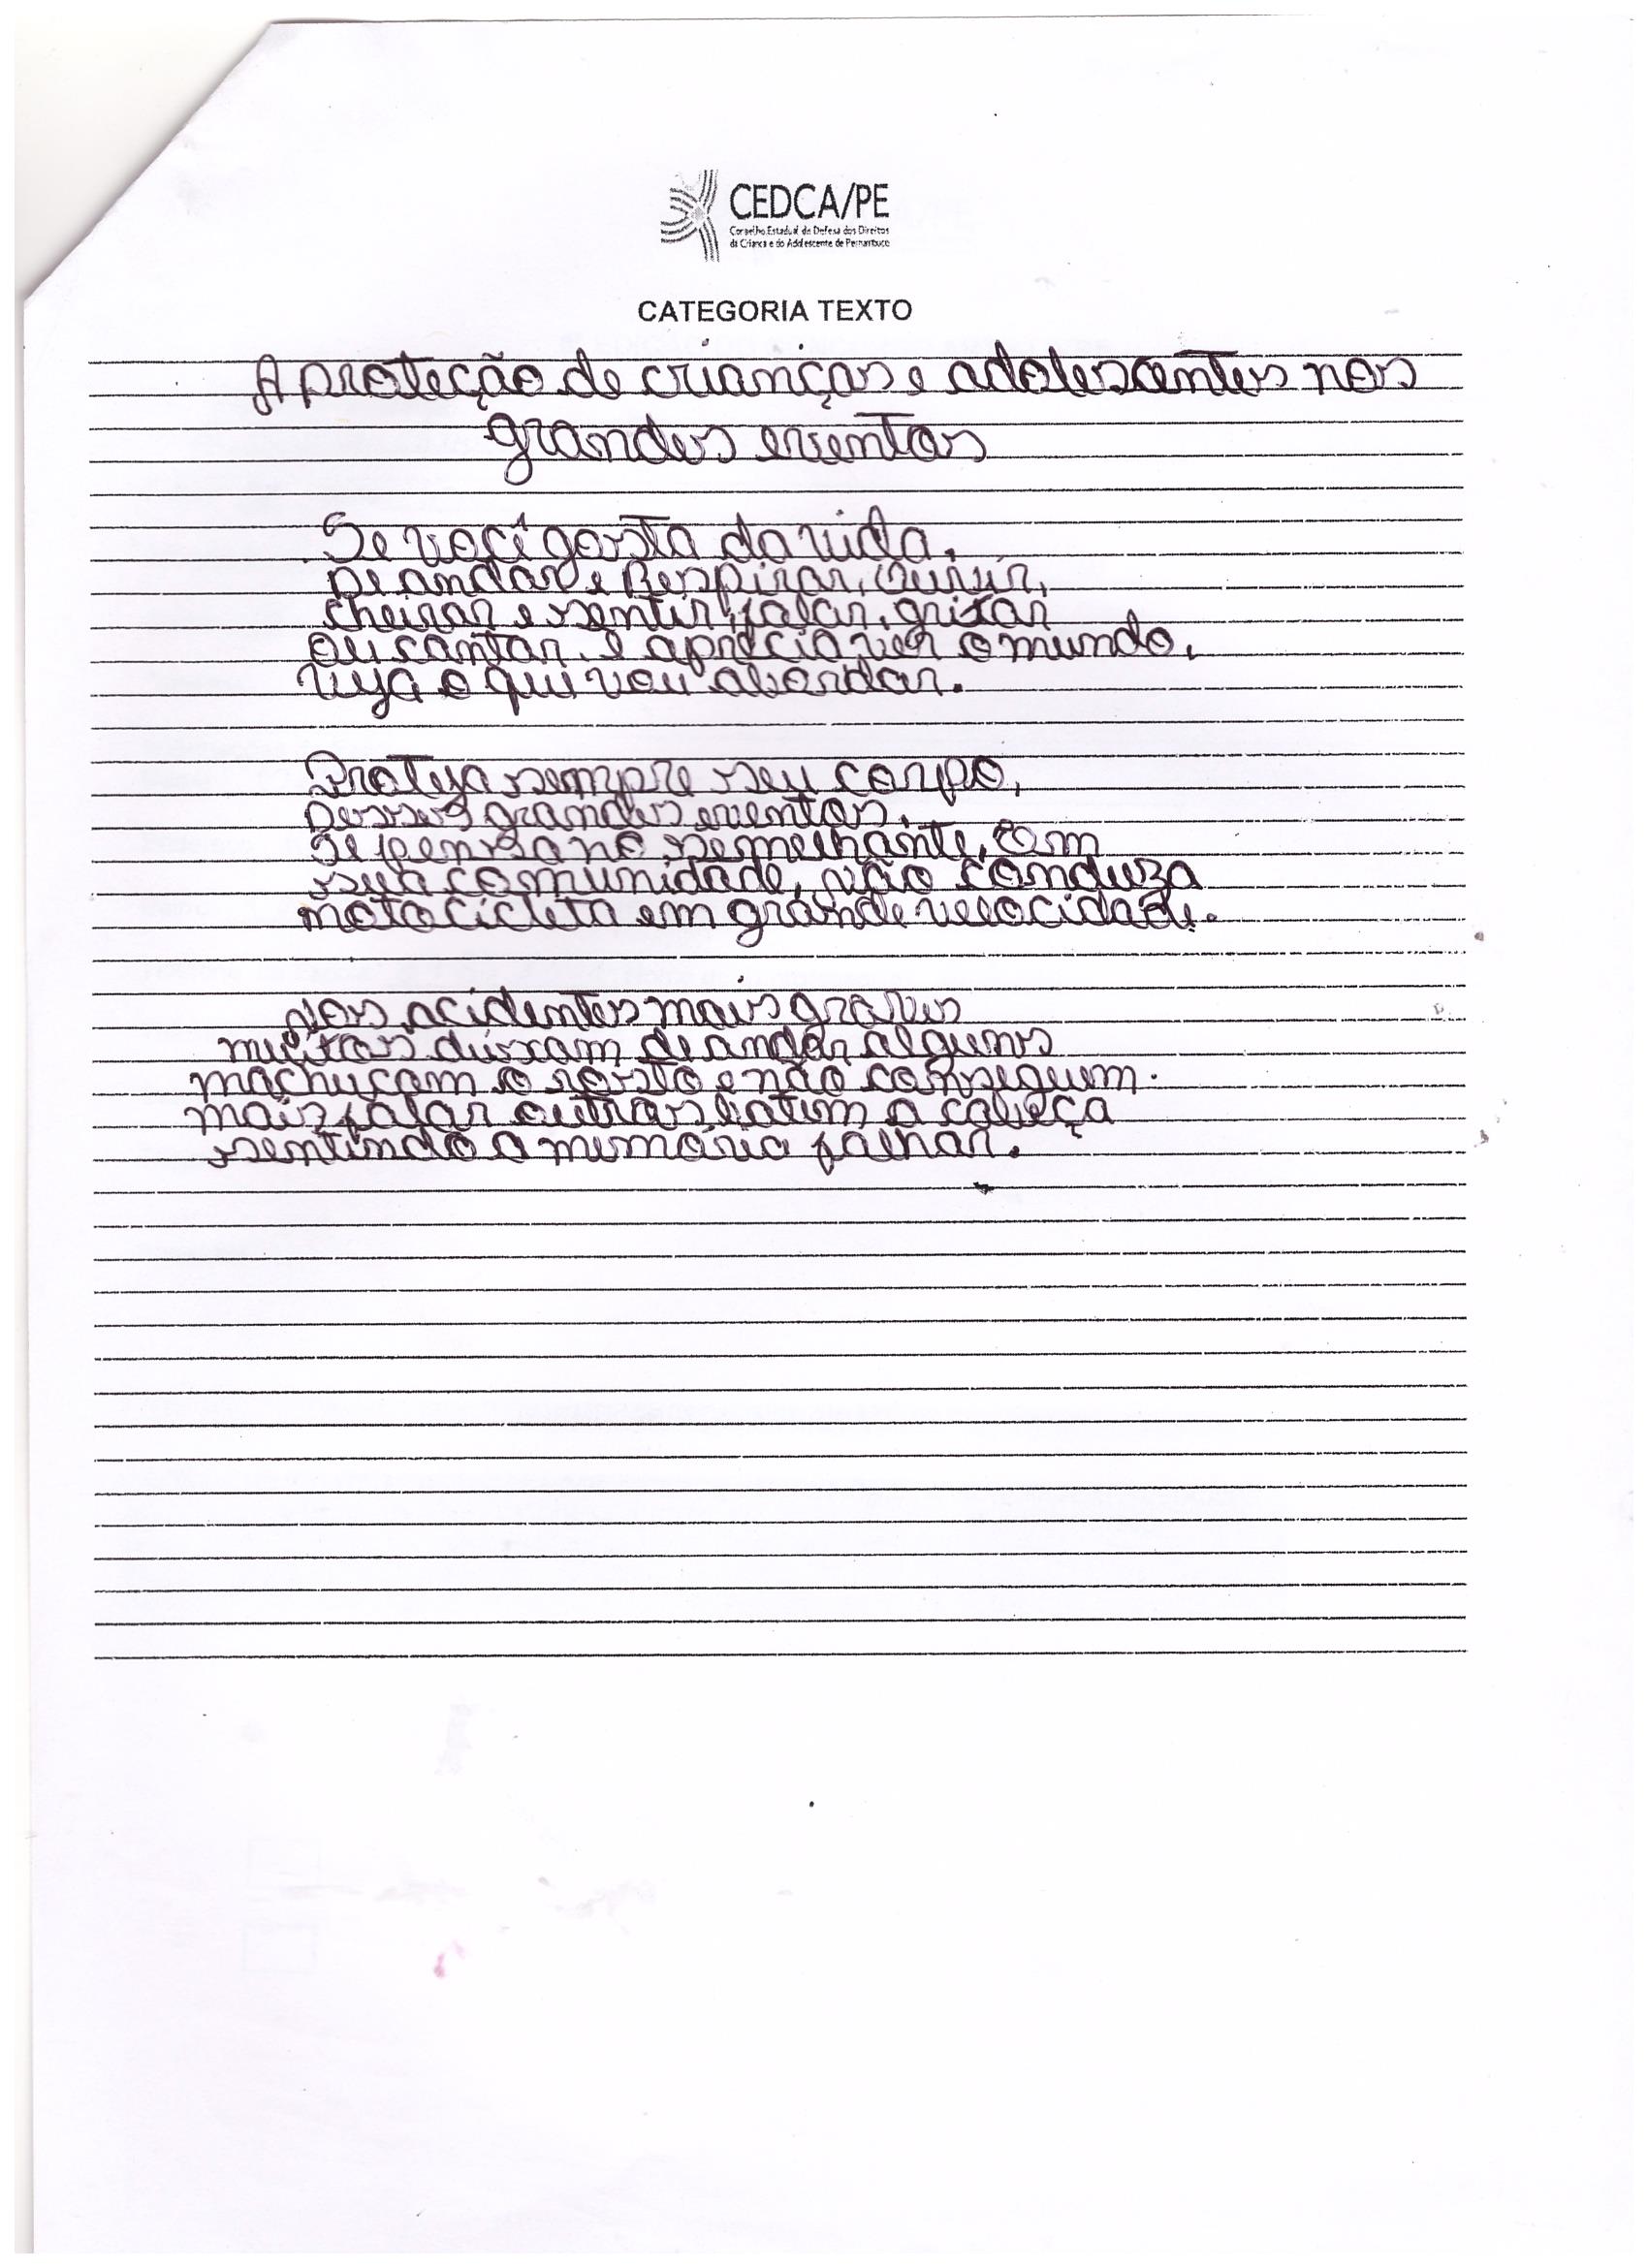 CEDCA/PE
Conselho Estadual de Defesa dos Direitos
da Criança e do Adolescente de Pernambuco
CATEGORIA TEXTO
A proteção de crianças e adolescentes nos
grandes eventos
Se você gosta da vida,
De andar e Respirar, Ouvir,
cheirar e sentir, falar, gritar
ou cantar. e aprecia ver o mundo,
veja o que vou abordar.
Proteja sempre seu corpo,
Desses grandes eventos.
Se pensa no semelhante, Em
sua comunidade, não conduza
motocicleta em grande velocidade.
Nos acidentes mais graves
muitos deixam de andar, alguns
machucam o rosto e não conseguem.
mais falar outras batem a cabeça
sentindo a memória falhar.